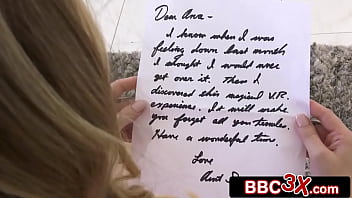 Dear Ana-
I know when I was
feeling down last month
I thought I would never
get over it. Then I
discovered this magical V.R.
experience. It will make
you forget all you troubles.
Have a wonderful time.
Love
Aunt
BBC3X.com